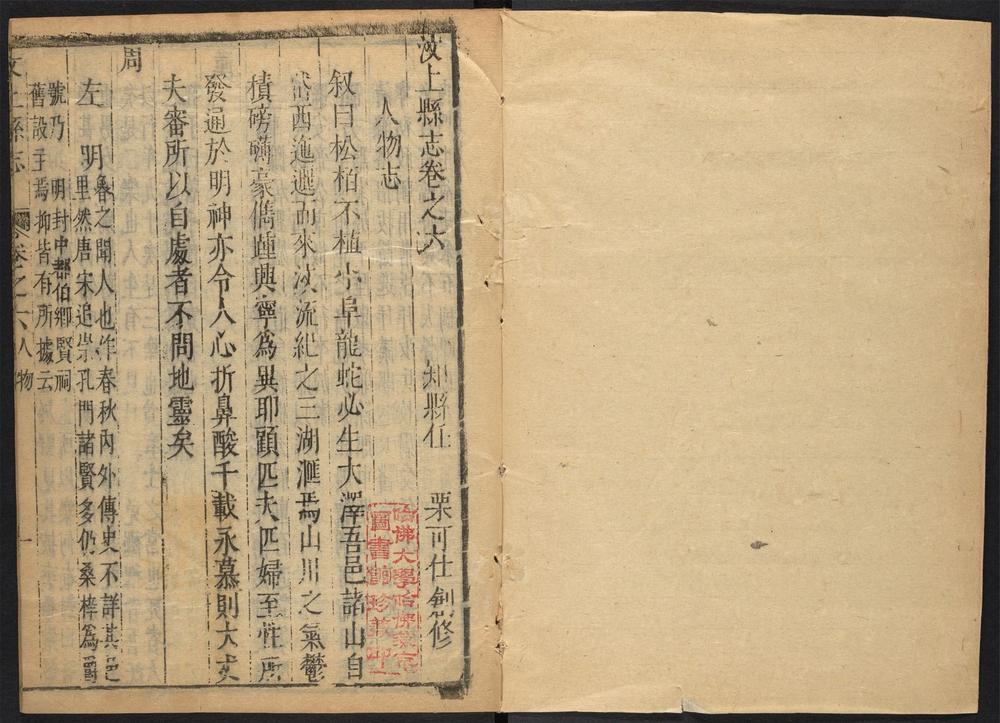 汶上縣志卷之六
知縣任 栗可仕創修
人物志
叙曰松栢不植小阜龍蛇必生大澤吾邑諸山自
岱西迤邐而來汶流紀之三湖滙焉山川之氣鬱
積磅礴豪儁踵興寧爲異耶顧匹夫匹婦至性所
發通於明神亦令人心折鼻酸千載永慕則大丈
夫審所以自處者不問地靈矣
周
左 明
魯之聞人也作春秋內外傳史不詳其邑
里然唐宋追崇孔門諸賢多仍桑梓爲爵
號乃 明封中都伯鄉賢祠
舊設主焉抑皆有所據云
汶上縣志 卷之六 人物 一
哈佛大學哈佛燕京
圖書館珍藏印